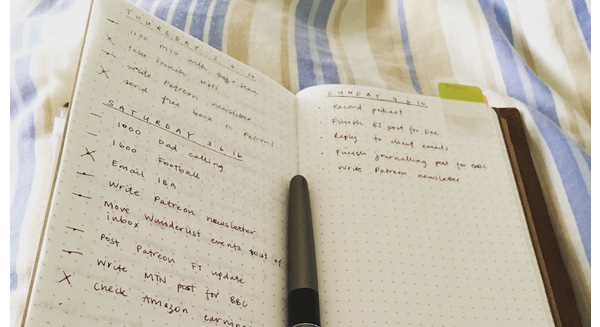 THURSDAY 2.6.16
– 1100 MTG with
× Take French
× Write Patreon newsletter
× Send free book to Patreon
SATURDAY 3.6.16
– 1000 Dad calling
– 1600 Football
× Email IBA
– Write Patreon newsletter
– Move Wunderlist events out of
inbox
– Post Patreon FT update
– Write MTN post for BBC
× Check Amazon
SUNDAY
· Record podcast
· Finish post for Dee
· Reply to client emails
· Finish journalling post for BBC
· Write Patreon newsletter